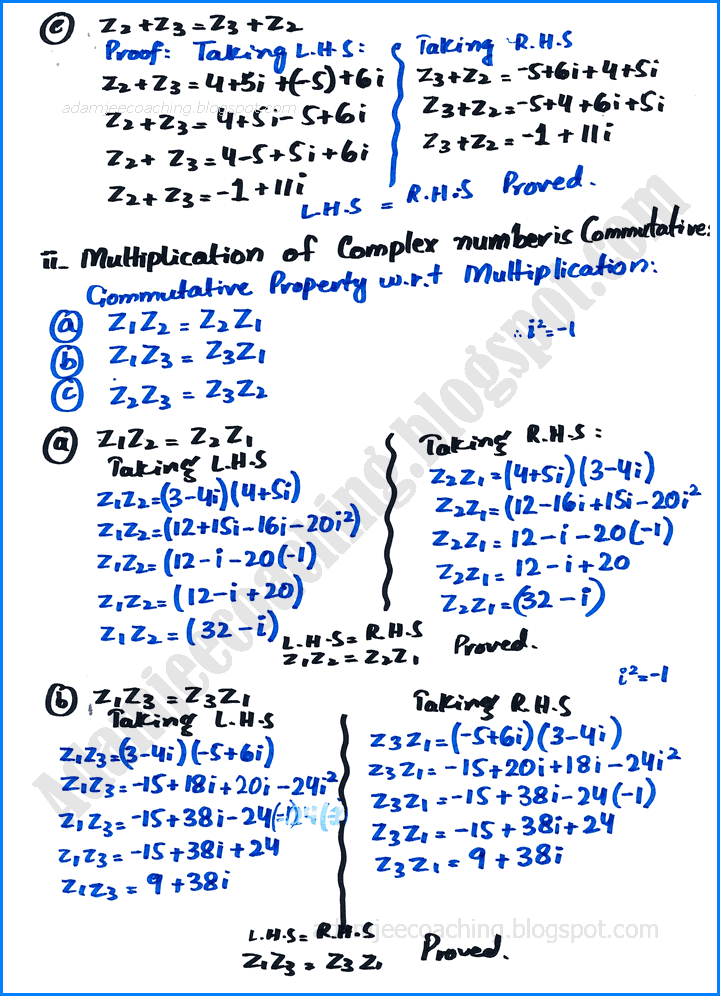 (c) Z₂+Z₃=Z₃+Z₂
Proof: Taking L.H.S:
Z₂+Z₃=4+5i+(-5)+6i
adamjeecoaching.blogspot.com
Z₂+Z₃=4+5i-5+6i
Z₂+Z₃=4-5+5i+6i
Z₂+Z₃=-1+11i
Taking R.H.S
Z₃+Z₂=-5+6i+4+5i
Z₃+Z₂=-5+4+6i+5i
Z₃+Z₂=-1+11i
L.H.S = R.H.S Proved.
ii- Multiplication of Complex number is Commutative:
Commutative Property w.r.t Multiplication:
(a) Z₁Z₂=Z₂Z₁
∴i²=-1
(b) Z₁Z₃=Z₃Z₁
(c) Z₂Z₃=Z₃Z₂
(a) Z₁Z₂=Z₂Z₁
Taking L.H.S
Z₁Z₂=(3-4i)(4+5i)
Z₁Z₂=(12+15i-16i-20i²)
Z₁Z₂=(12-i-20(-1)
Z₁Z₂=(12-i+20)
Z₁Z₂=(32-i)
Taking R.H.S:
Z₂Z₁=(4+5i)(3-4i)
Z₂Z₁=(12-16i+15i-20i²
Z₂Z₁=12-i-20(-1)
Z₂Z₁=12-i+20
Z₂Z₁=(32-i)
L.H.S=R.H.S
Z₁Z₂=Z₂Z₁ Proved.
i²=-1
(b) Z₁Z₃=Z₃Z₁
Taking L.H.S
Z₁Z₃=(3-4i)(-5+6i)
Z₁Z₃=-15+18i+20i-24i²
Z₁Z₃=-15+38i-24(-1)
Z₁Z₃=-15+38i+24
Z₁Z₃=9+38i
Taking R.H.S
Z₃Z₁=(-5+6i)(3-4i)
Z₃Z₁=-15+20i+18i-24i²
Z₃Z₁=-15+38i-24(-1)
Z₃Z₁=-15+38i+24
Z₃Z₁=9+38i
adamjeecoaching.blogspot.com
L.H.S=R.H.S
Z₁Z₃=Z₃Z₁ Proved.
Adamjeecoaching.blogspot.com